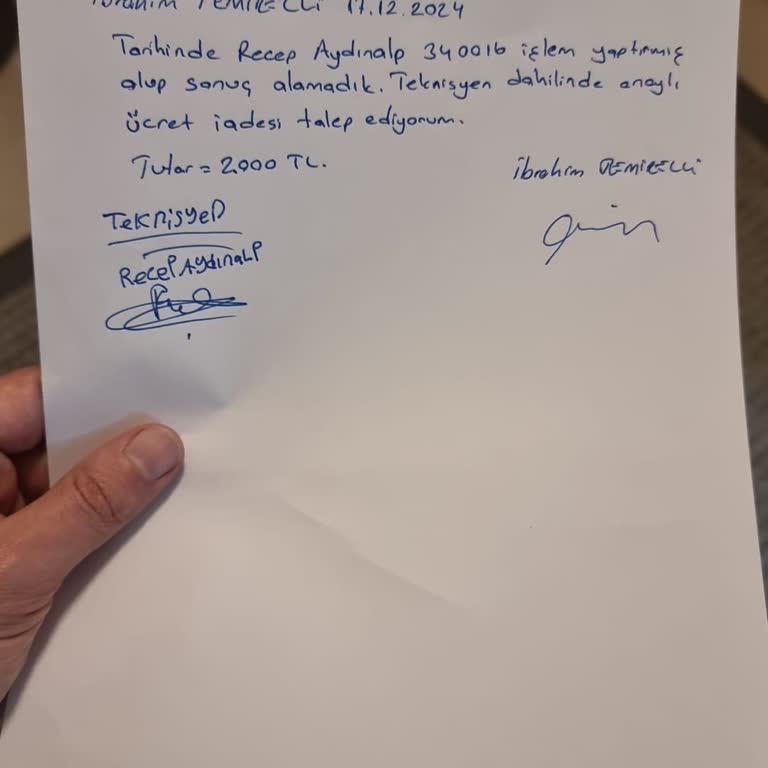 İbrahim DEMİRELLİ 17.12.2024
Tarihinde Recep Aydınalp 340016 işlem yaptırmış
olup sonuç alamadık. Teknisyen dahilinde onaylı
ücret iadesi talep ediyorum.
Tutar = 2.000 TL.
İbrahim DEMİRELLİ
TEKNİSYEN
RECEP AYDINALP